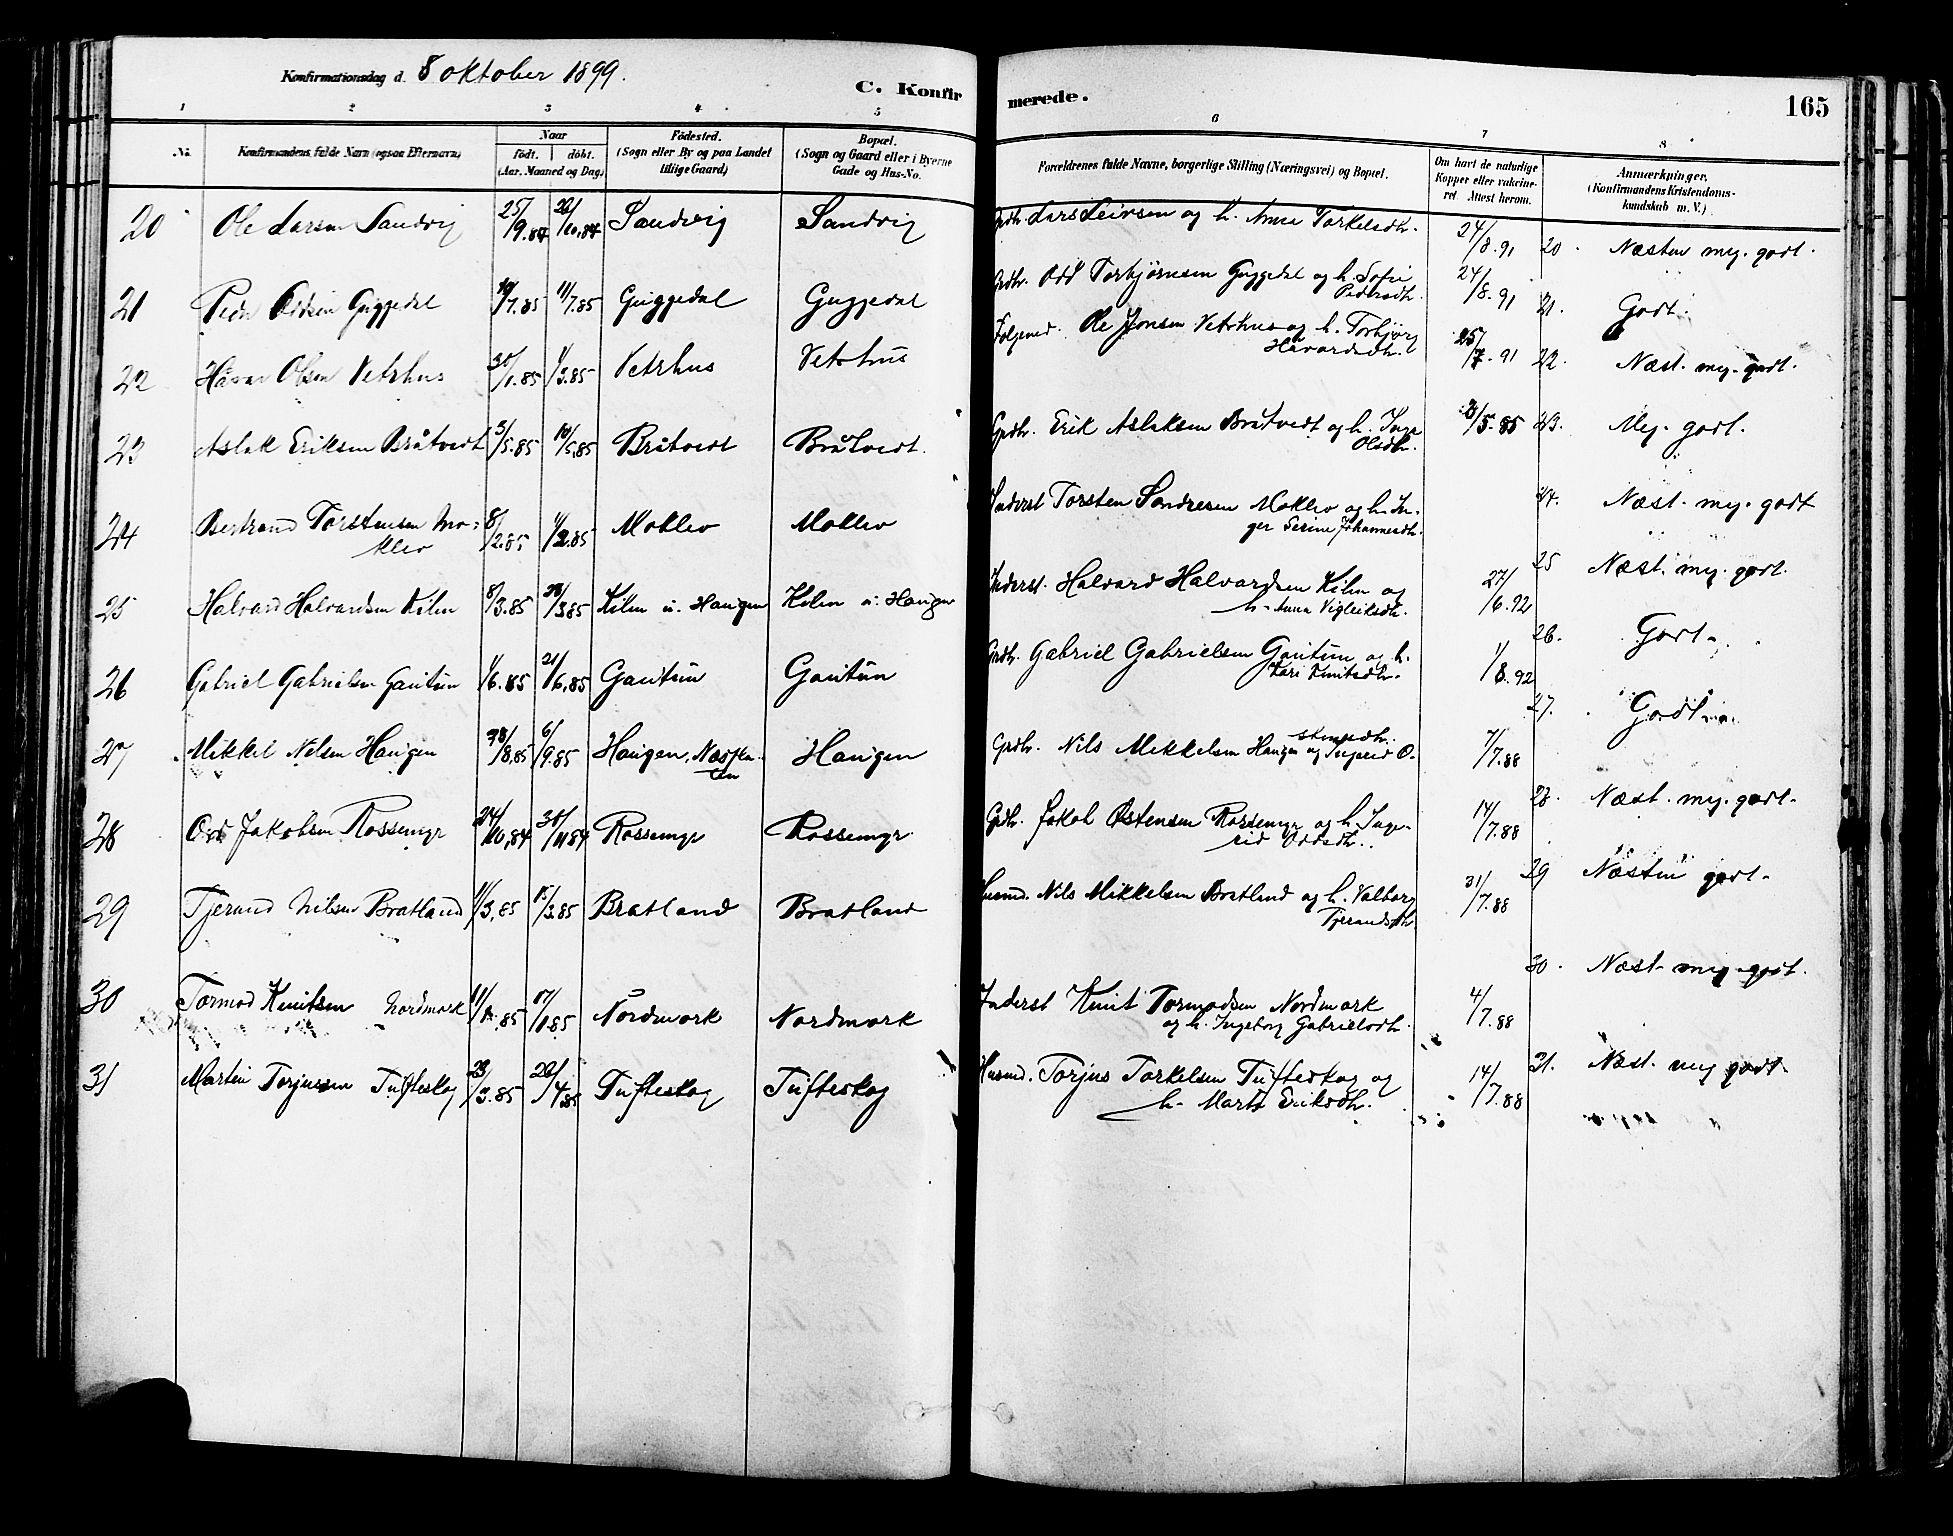 Konfirmationsdag d. 8 oktober 1899.
C. Konfirmerede.
165
1 2 3 4 5 6 7 8
No. Konfirmandens fulde Navn (ogsaa Efternavn) Naar født. døbt. (Aar, Maaned og Dag) Fødested. (Sogn eller By og paa Landet tillige Gaard) Bopæl. (Sogn og Gaard eller i Byerne Gade og Hus-No. Forældrenes fulde Navne, borgerlige Stilling (Næringsvei) og Bopæl. Om havt de naturlige Kopper eller vakcineret. Attest herom. Anmærkninger. (Konfirmandens Kristendomskundskab m. V.)
20 Ole Larsen Sandvig 25/9.84 26/10.84 Sandvig Sandvig Grdbr. Lars Leivsen og h. Anna Torkelsdtr. 24/8.91 20. Næsten meg. godt.
21 Peder Oddsen Guggedal 7.85 11/7.85 Guggedal Guggedal Grdbr. Odd Torbjørnsen Guggedal og h. Sofie Pedersdtr. 24/8.91 21. Godt.
22 Håvar Olsen Vetrhus 30/1.85 1/3.85 Vetrhus Vetrhus Følgemd. Ole Jonsen Vetrhus og h. Torbjørg Håvardsdtr. 25/7.91 22. Næst. meg. godt.
23 Aslak Eriksen Bråtvedt 3/5.85 10/5.85 Bråtvedt Bråtvedt. Grdbr. Erik Aslaksen Bråtvedt og h. Inga Olsdtr. 23. Meg. godt.
24 Bertrand Torstensen Moklev 8/2.85 Moklev Moklev Inderst Torsten Sondresen Moklev og h. Inger Serine Johannesdtr. 24. Næst. meg. godt
25 Halvard Halvardsen Kilen 8/3.85 3.85 Kilen u. Haugen Kilen u. Haugen Inderst. Halvard Halvardsen Kilen og h. Anna Vigleiksdtr. 27/6.92 25 Næst. meg. godt.
26 Gabriel Gabrielsen Gautun 1/6.85 21/6.85 Gautun Gautun Grdbr. Gabriel Gabrielsen Gautun og h. Kari Knutsdtr. 1/8.92 26. Godt.
27 Mikkel Nilsen Haugen 8.85 6/9.85 Haugen, Næsflaten Haugen Grdbr. Nils Mikkelsen Haugen og Ingerid Østensdtr. 7/7.88 27. Godt
28 Odd Jakobsen Røssemyr 24/10.84 30/11.84 Røssemyr Røssemyr Grdbr. Jakob Østensen Røssemyr og h. Ingerid Oddsdtr. 14/7.88 28. Næst. meg. godt.
29 Tjerand Nilsen Bratland 1/3.85 15/3.85 Bratland Bratland Husmd. Nils Mikkelsen Bratland og h. Valborg Tjerandsdtr. 31/7.88 29 Næsten godt.
30 Tormod Knutsen Nordmork 11/1.85 Nordmork Nordmork Inderst Knut Tormodsen Nordmork og h. Ingeborg Gabrielsdtr. 4/7.88 30. Næst. meg. godt.
31 Martin Torjussen Tufteskog 23/3.85 26/4.85 Tufteskog Tufteskog Husmd. Torjus Torkelsen Tufteskog og h. Marta Eriksdtr. 14/7.88 31. Næst. meg godt.